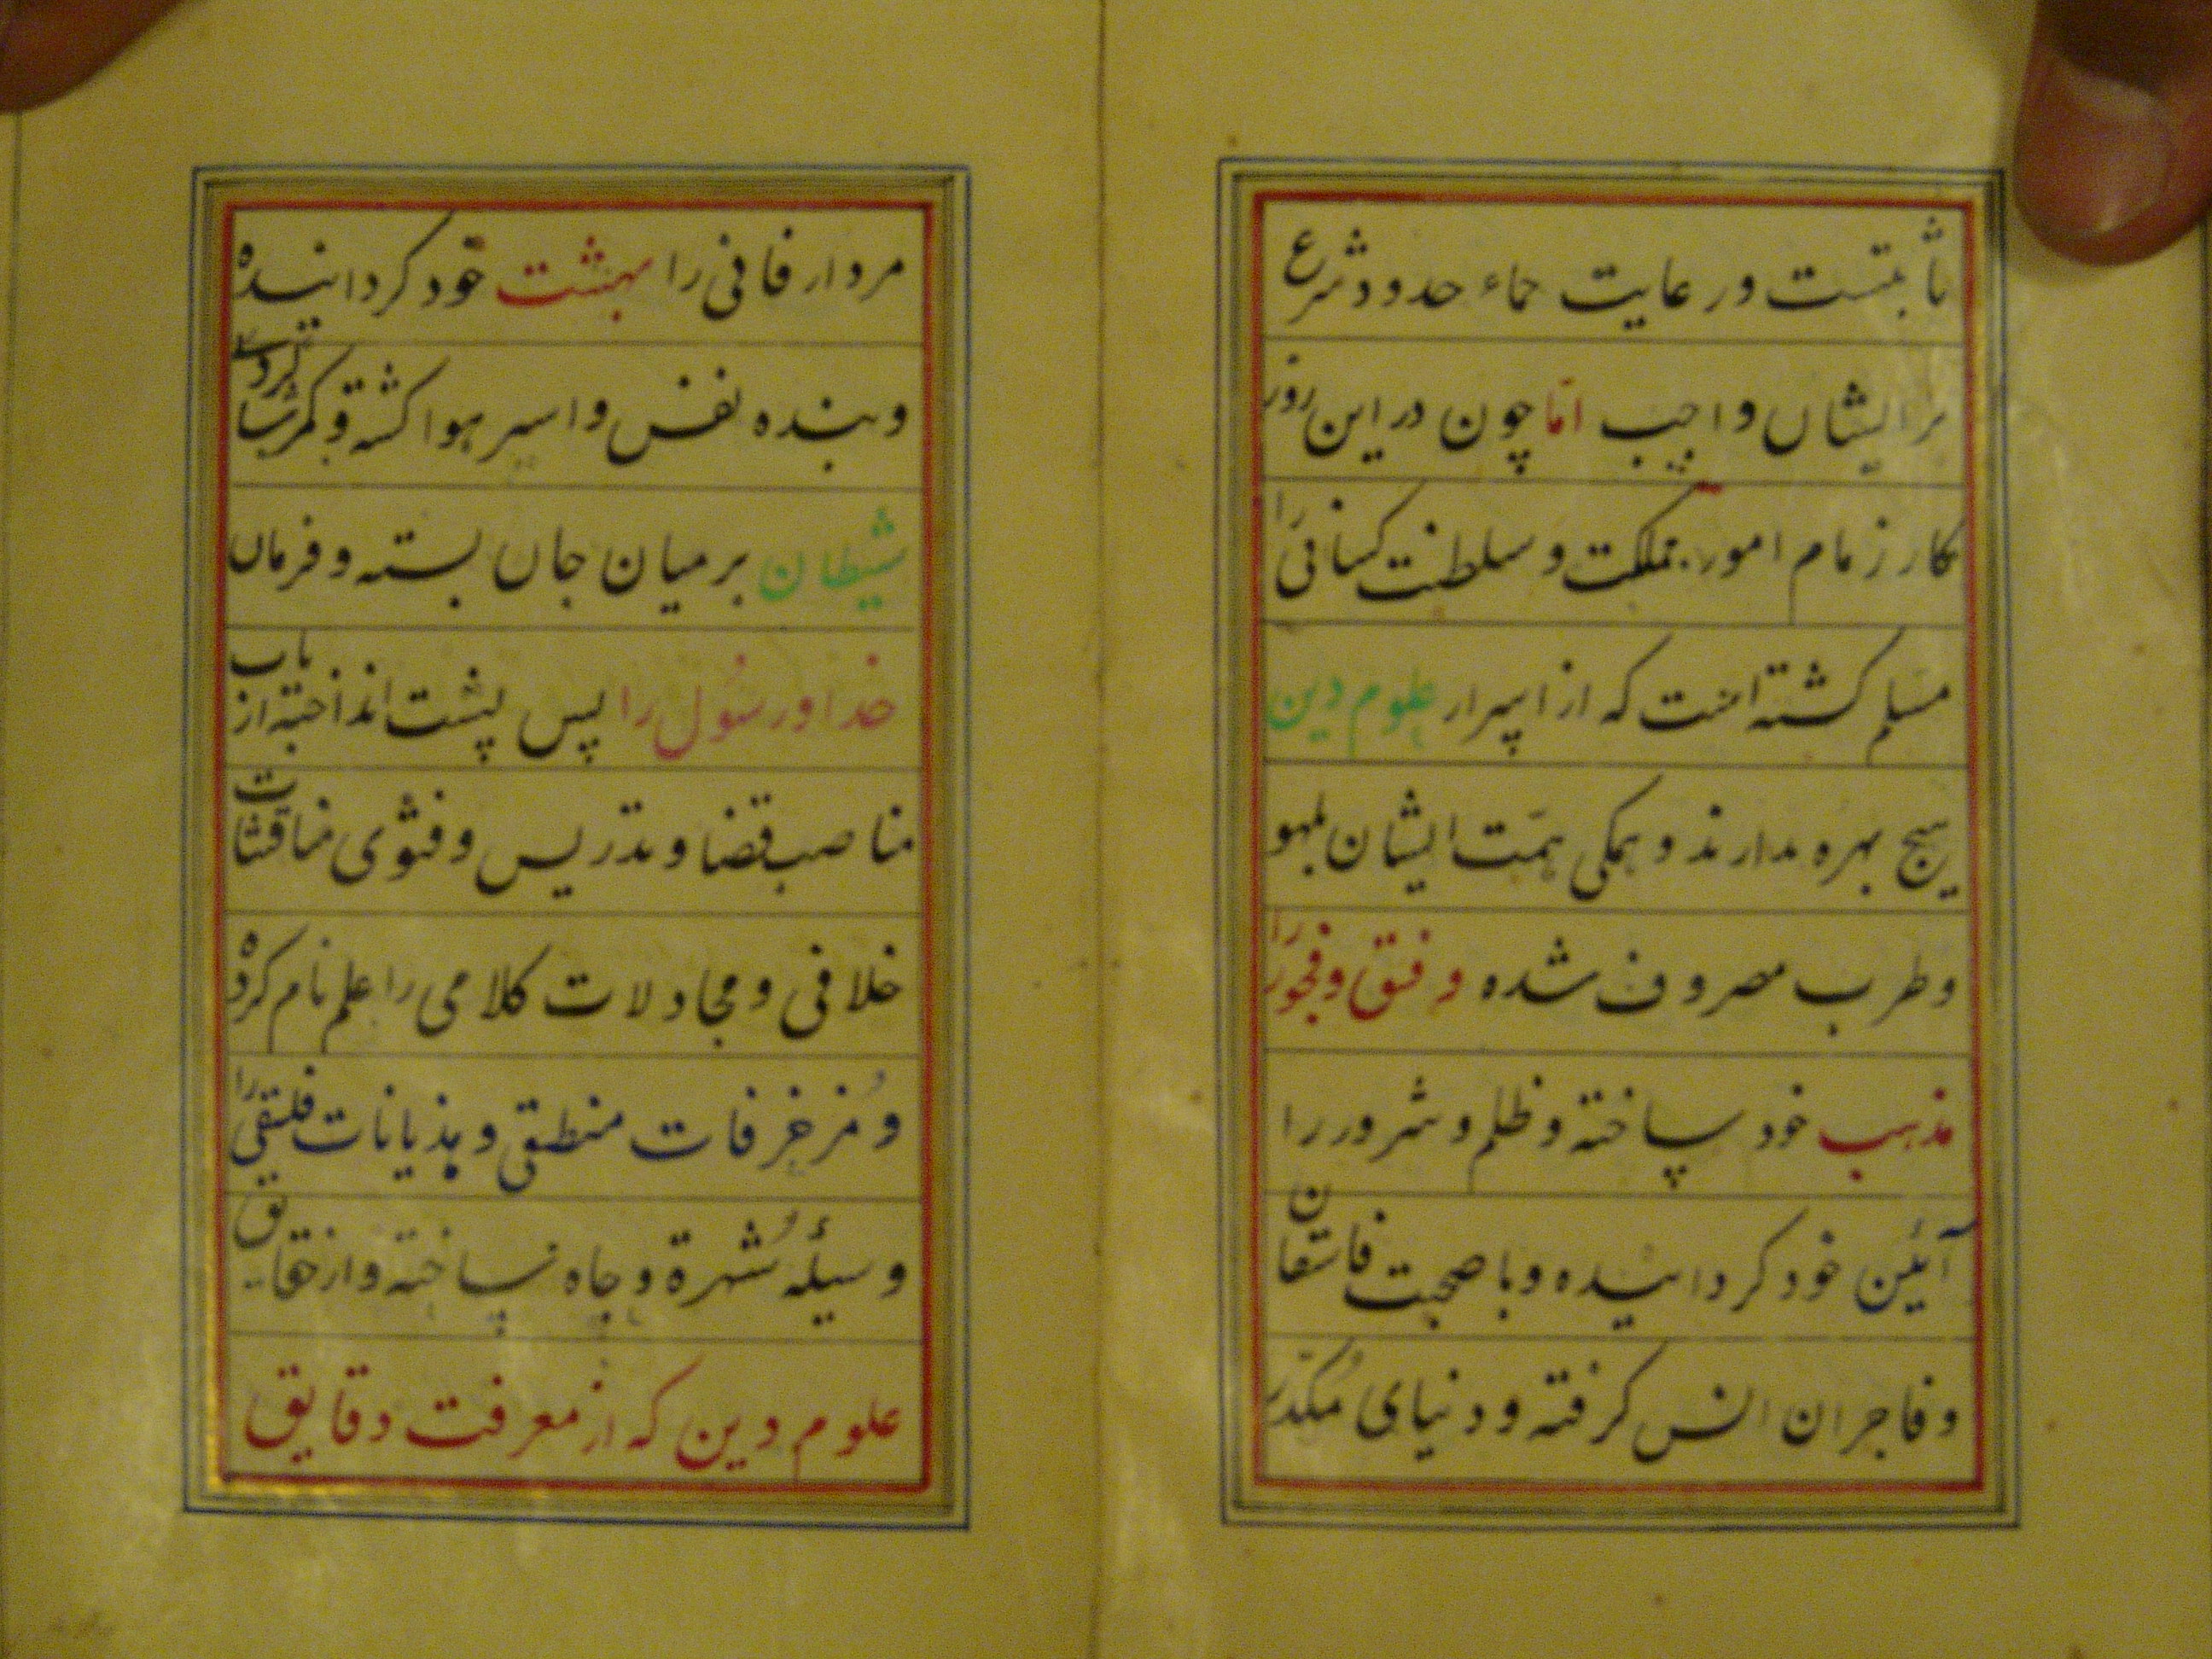 ثابتست ورعایت حماء حدود شرع
برایشان واجب امّا چون در این روز
کار زمام امور مملکت وسلطنت کسانی را
مسلم کشته است که از اسرار علوم دین
هیچ بهره ندارند وهمکی همّت ایشان بلهو
وطرب مصروف شده و فسق وفجور را
مذهب خود ساخته وظلم وشرور را
آئین خود کردانیده وبا صحبت فاسقان
وفاجران انس کرفته ودنیای مُکدّر
مردار فانی را بهشت خود کردانیده
وبنده نفس واسیر هوا کشته وکمر
شیطان برمیان جان بسته وفرمان
خدا ورسول را پس پشت انداخته از باب
مناصب قضا وتدریس وفتوی مناقشات
خلافی ومجادلات کلامی را علم نام کرده
ومُزخرفات منطقی وهذیانات فلسفی را
وسیلهٔ شُهرة وجاه ساخته واز حقایق
علوم دین که از معرفت دقایق